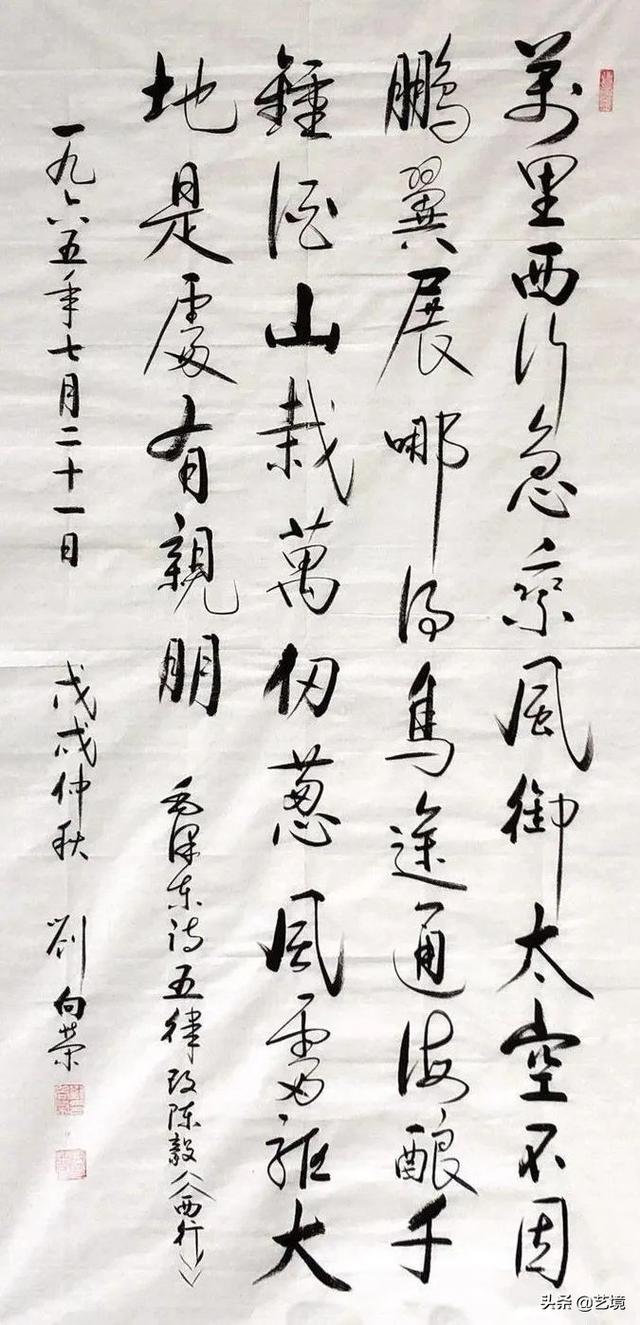 萬里西行急乘風御太空不因
鵬翼展哪得鳥途通海酿千
鍾酒山栽萬仞葱風雷驱大
地是處有親朋
毛泽东诗五律改陈毅《西行》
一九六五年七月二十一日
戊戌仲秋 劉向荣
头条 @艺境